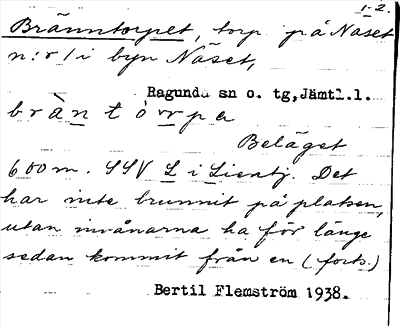 1-2.
Bränntorpet, torp på Näset
n:r 1 i byn Näset,
Ragunda sn o. tg, Jämtl.l.
bràntórpa
Beläget
600 m. SSV L i Lientj. Det
har inte brunnit på platsen,
utan invånarna ha för länge
sedan kommit från en (forts.)
Bertil Flemström 1938.